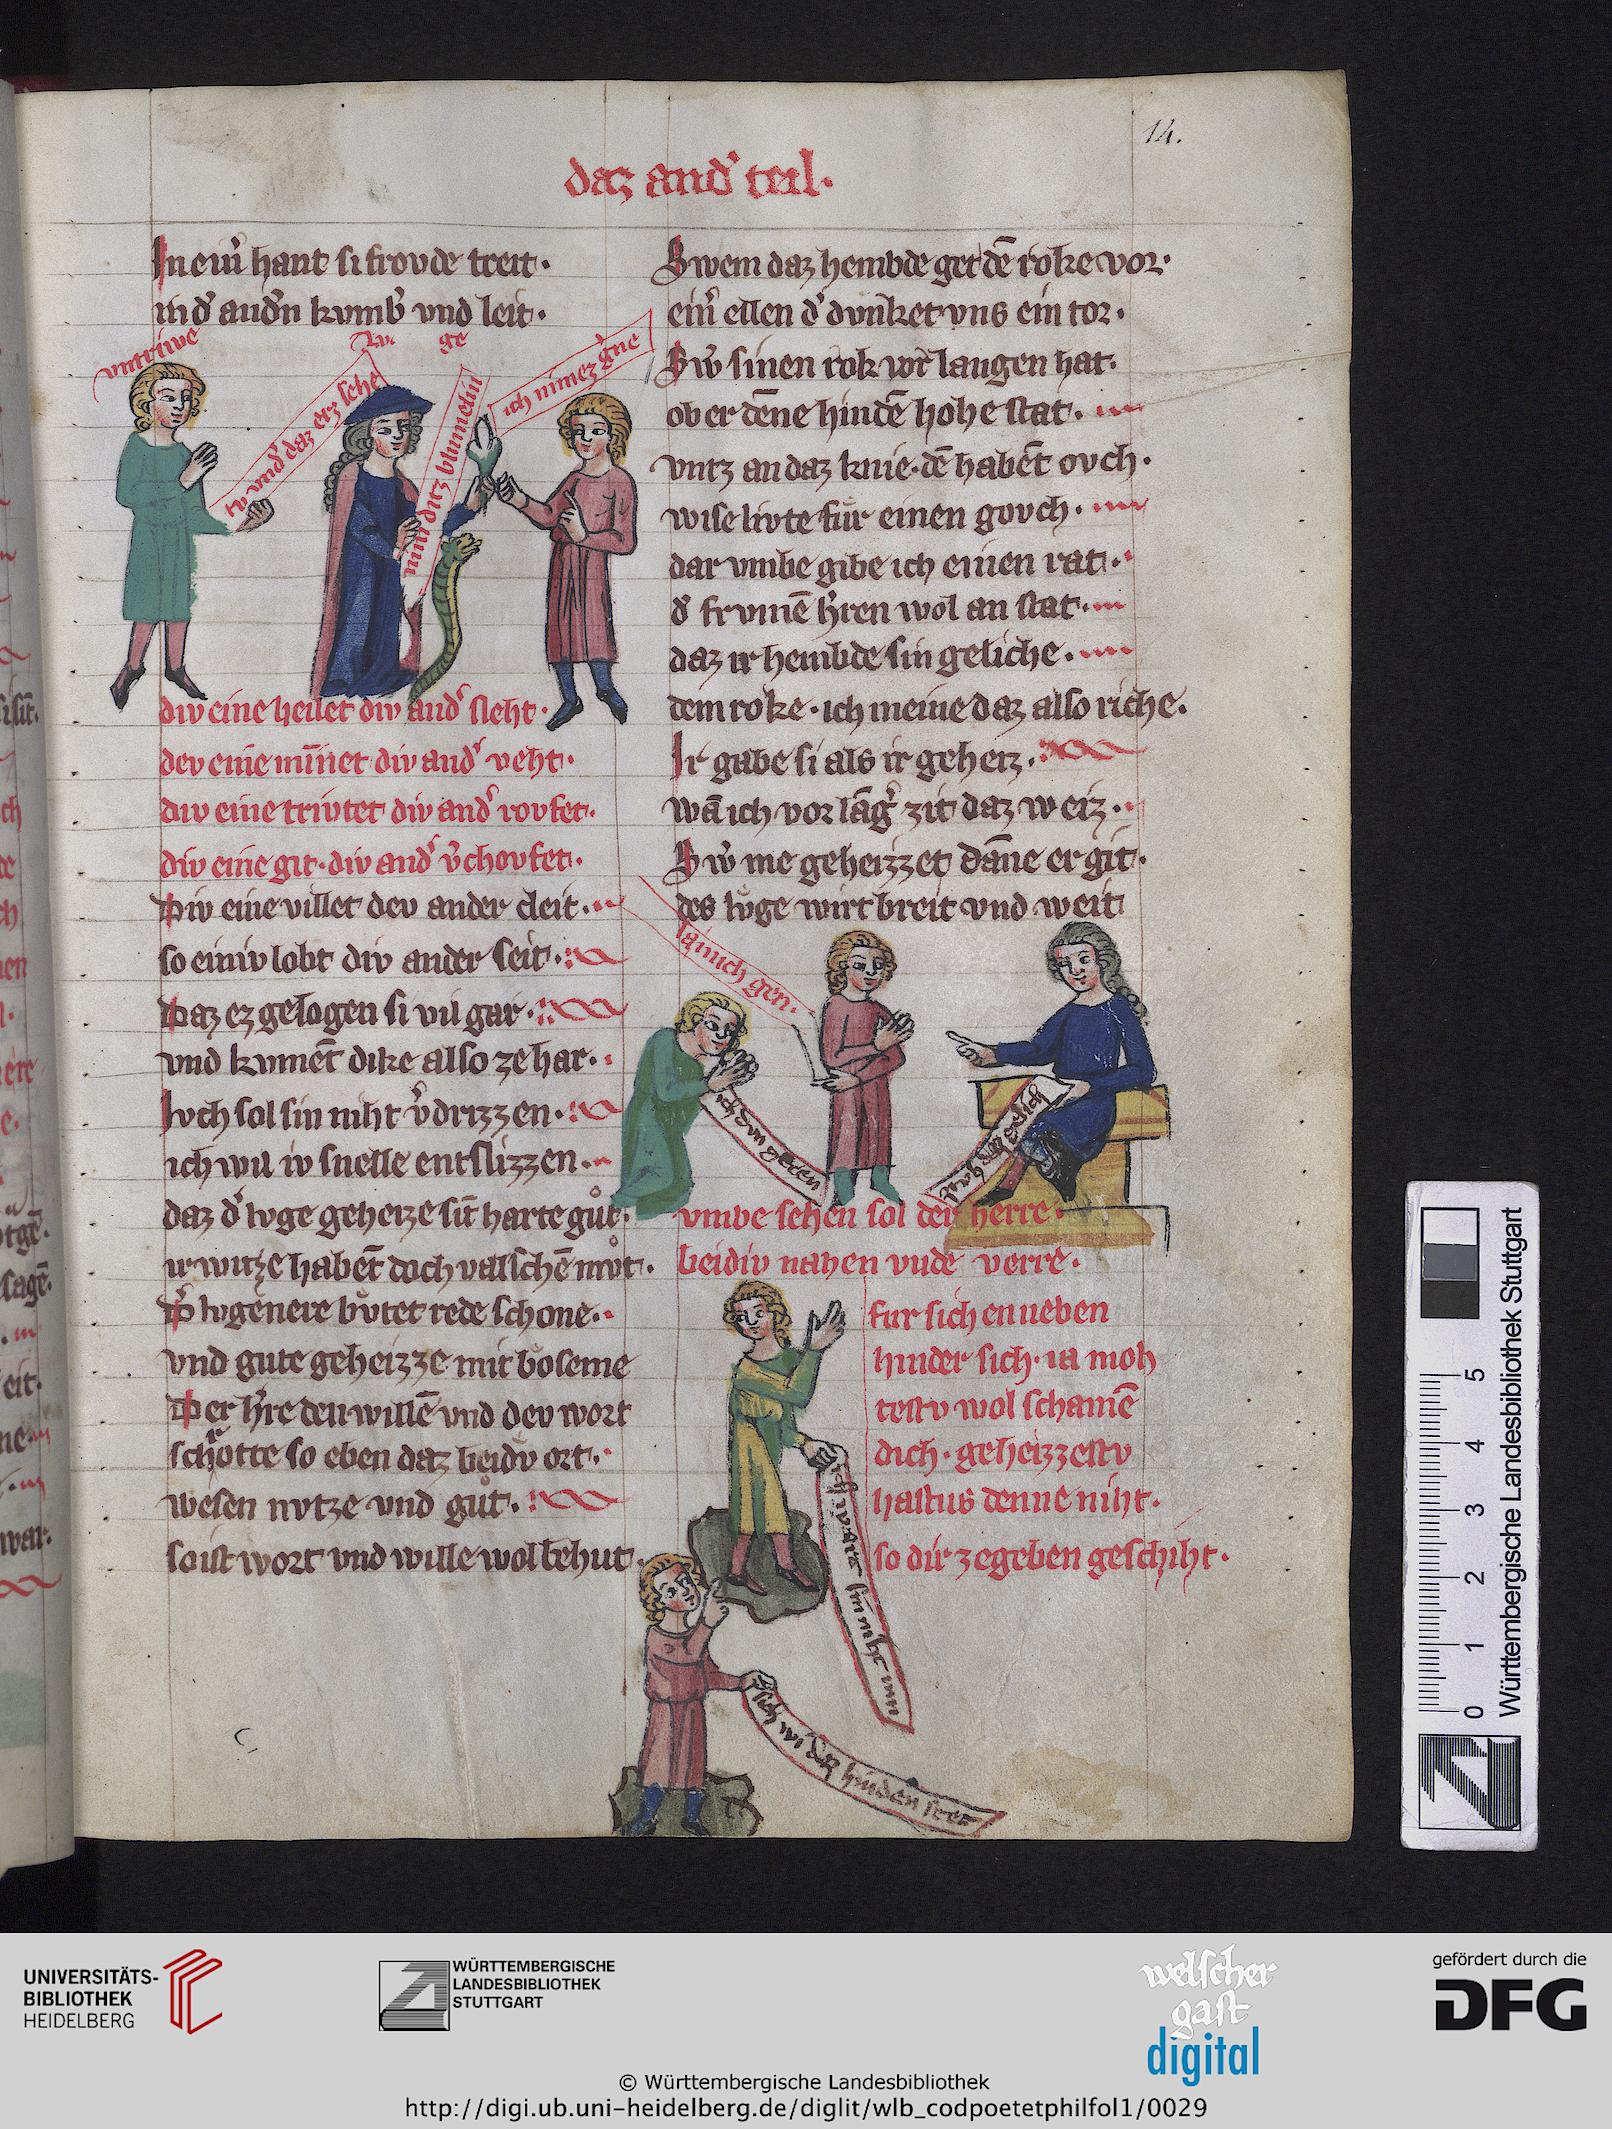 14.
daz and' teil.
In ein' hant si frovde treit.
in d' and'n kumb' vnd leit.
vntriwe
Lu ge
tu vnd' daz erz sehe
nim ditz blumelin
ich nimez g'ne
div eine heilet div and' sleht.
dev eine mīnet div and' veht.
div eine trivtet div and' rovfet.
div eine git. div and' v'chovfet.
Div eine villet dev ander cleit.
so einiv lobt div ander seit.
Daz ez gelogen si vil gar.
vnd kvment dike also ze har.
Ivch sol sin niht v'drizzen.
ich wil iv snelle entslizzen.
daz d' lvge geheize sīt harte gůt.
ir witze habēt doch valschē mvͦt.
D' lvgenere bvͤtet rede schone.
vnd gute geheizze mit boseme
Der h're den willē vnd dev wort
schrotte so eben daz beidv ort.
wesen nvtze vnd gůt.
so ist wort vnd wille wol behut.
Swem daz hembde get dē roke vor.
ein' ellen d' dvnket vns ein tor.
Sw' sinen rok vor langen hat.
ob er dēne hindē hohe stat.
vntz an daz knie. dē habēt ovch.
wise livte fuͤr einen govch.
dar vmbe gibe ich einen rat.
d' frvmē h'ren wol an stat.
daz ir hembde sin geliche.
dem roke. ich meine daz also riche.
Ir gabe si als ir geheiz.
wā ich vor lāg' zit daz weiz.
Sw' me geheizzet dāne er git.
des lvͤge wirt breit vnd weit
la mich gen.
vmbe sehen sol der herre.
beidiv nahen vnde verre.
fur sich en neben
hinder sich. ia moh
testv wol schamē
dich. geheizzestv
hastus denne niht.
so dir ze geben geschiht.
ich wart sin niht inn
sich wi daz hinden stet
0 1 2 3 4 5
Württembergische Landesbibliothek Stuttgart
UNIVERSITÄTS-
BIBLIOTHEK
HEIDELBERG
WÜRTTEMBERGISCHE
LANDESBIBLIOTHEK
STUTTGART
welscher
gast
digital
gefördert durch die
DFG
© Württembergische Landesbibliothek
http://digi.ub.uni-heidelberg.de/diglit/wlb_codpoetetphilfol1/0029